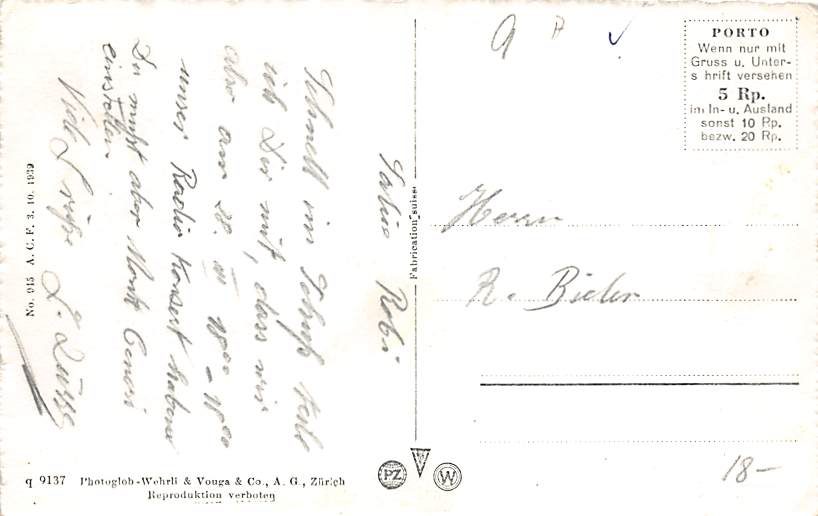 Salue Robi
Schnell im Schuss teile
ich Dir mit, dass wir
also am 28. III 18⁰⁰ – 18⁰⁰
unser Radio Konsert haben
Du musst aber Monte Ceneri
einstellen.
Viele Grüsse
No. 915 A. C. F. 3. 10. 1939
Fabrication suisse
PORTO
Wenn nur mit
Gruss u. Unter-
s hrift versehen
5 Rp.
im In- u. Ausland
sonst 10 Rp.
bezw. 20 Rp.
Herrn
R. Bieler
18–
q 9137 Photoglob-Wehrli & Vouga & Co., A. G., Zürich
Reproduktion verboten
PZ
W